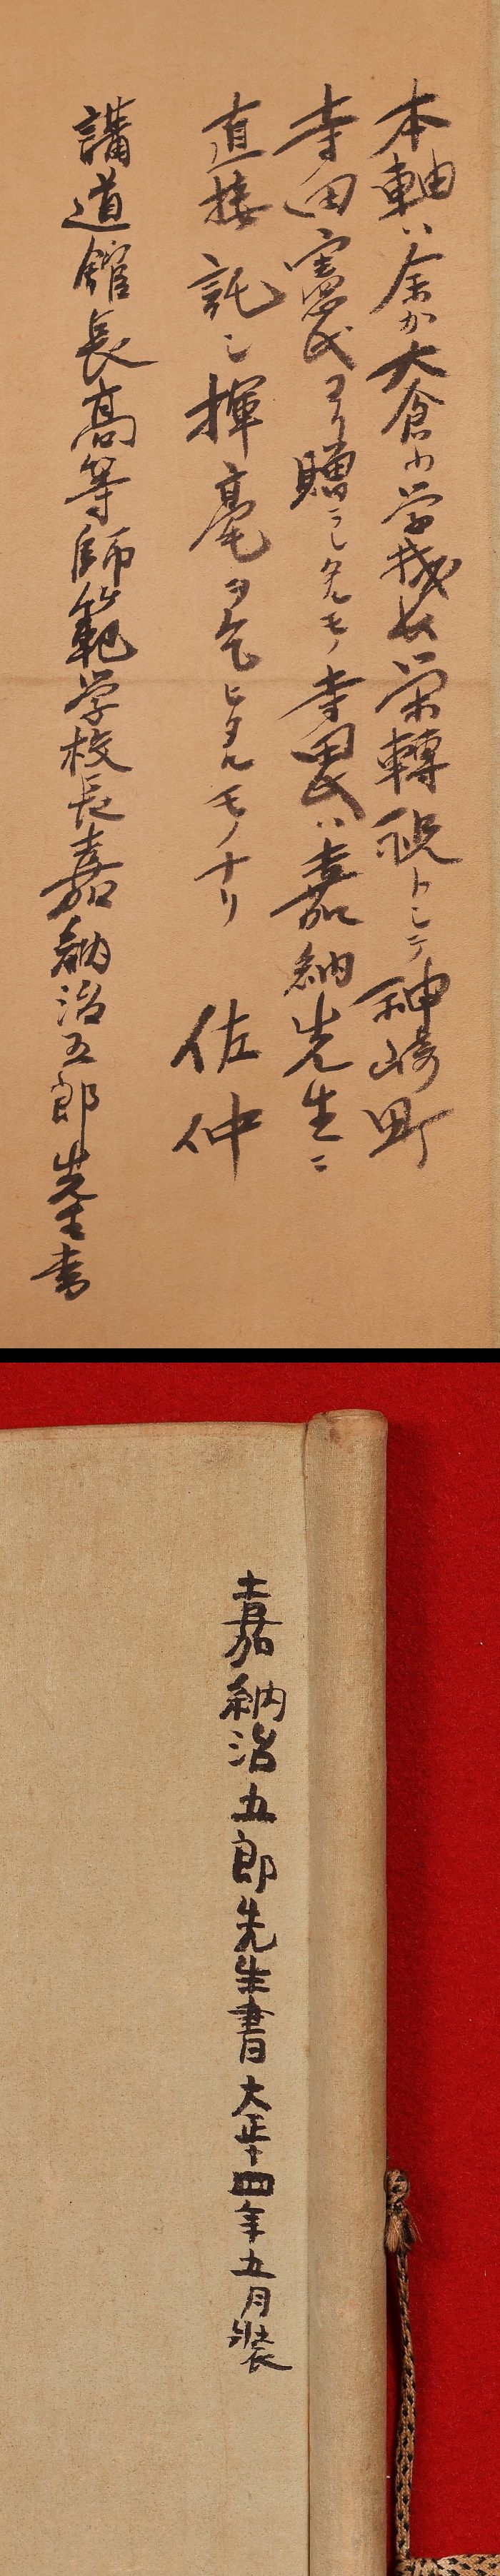 本軸ハ余カ大倉小学校ヨリ栄轉祝トシテ神崎町
寺田憲氏ヨリ贈ラレタルモノ寺田氏ハ嘉納先生ニ
直接託シ揮毫ヲ乞ヒタルモノナリ 佐仲
講道館長高等師範学校長嘉納治五郎先生書
嘉納治五郎先生書 大正十四年五月装